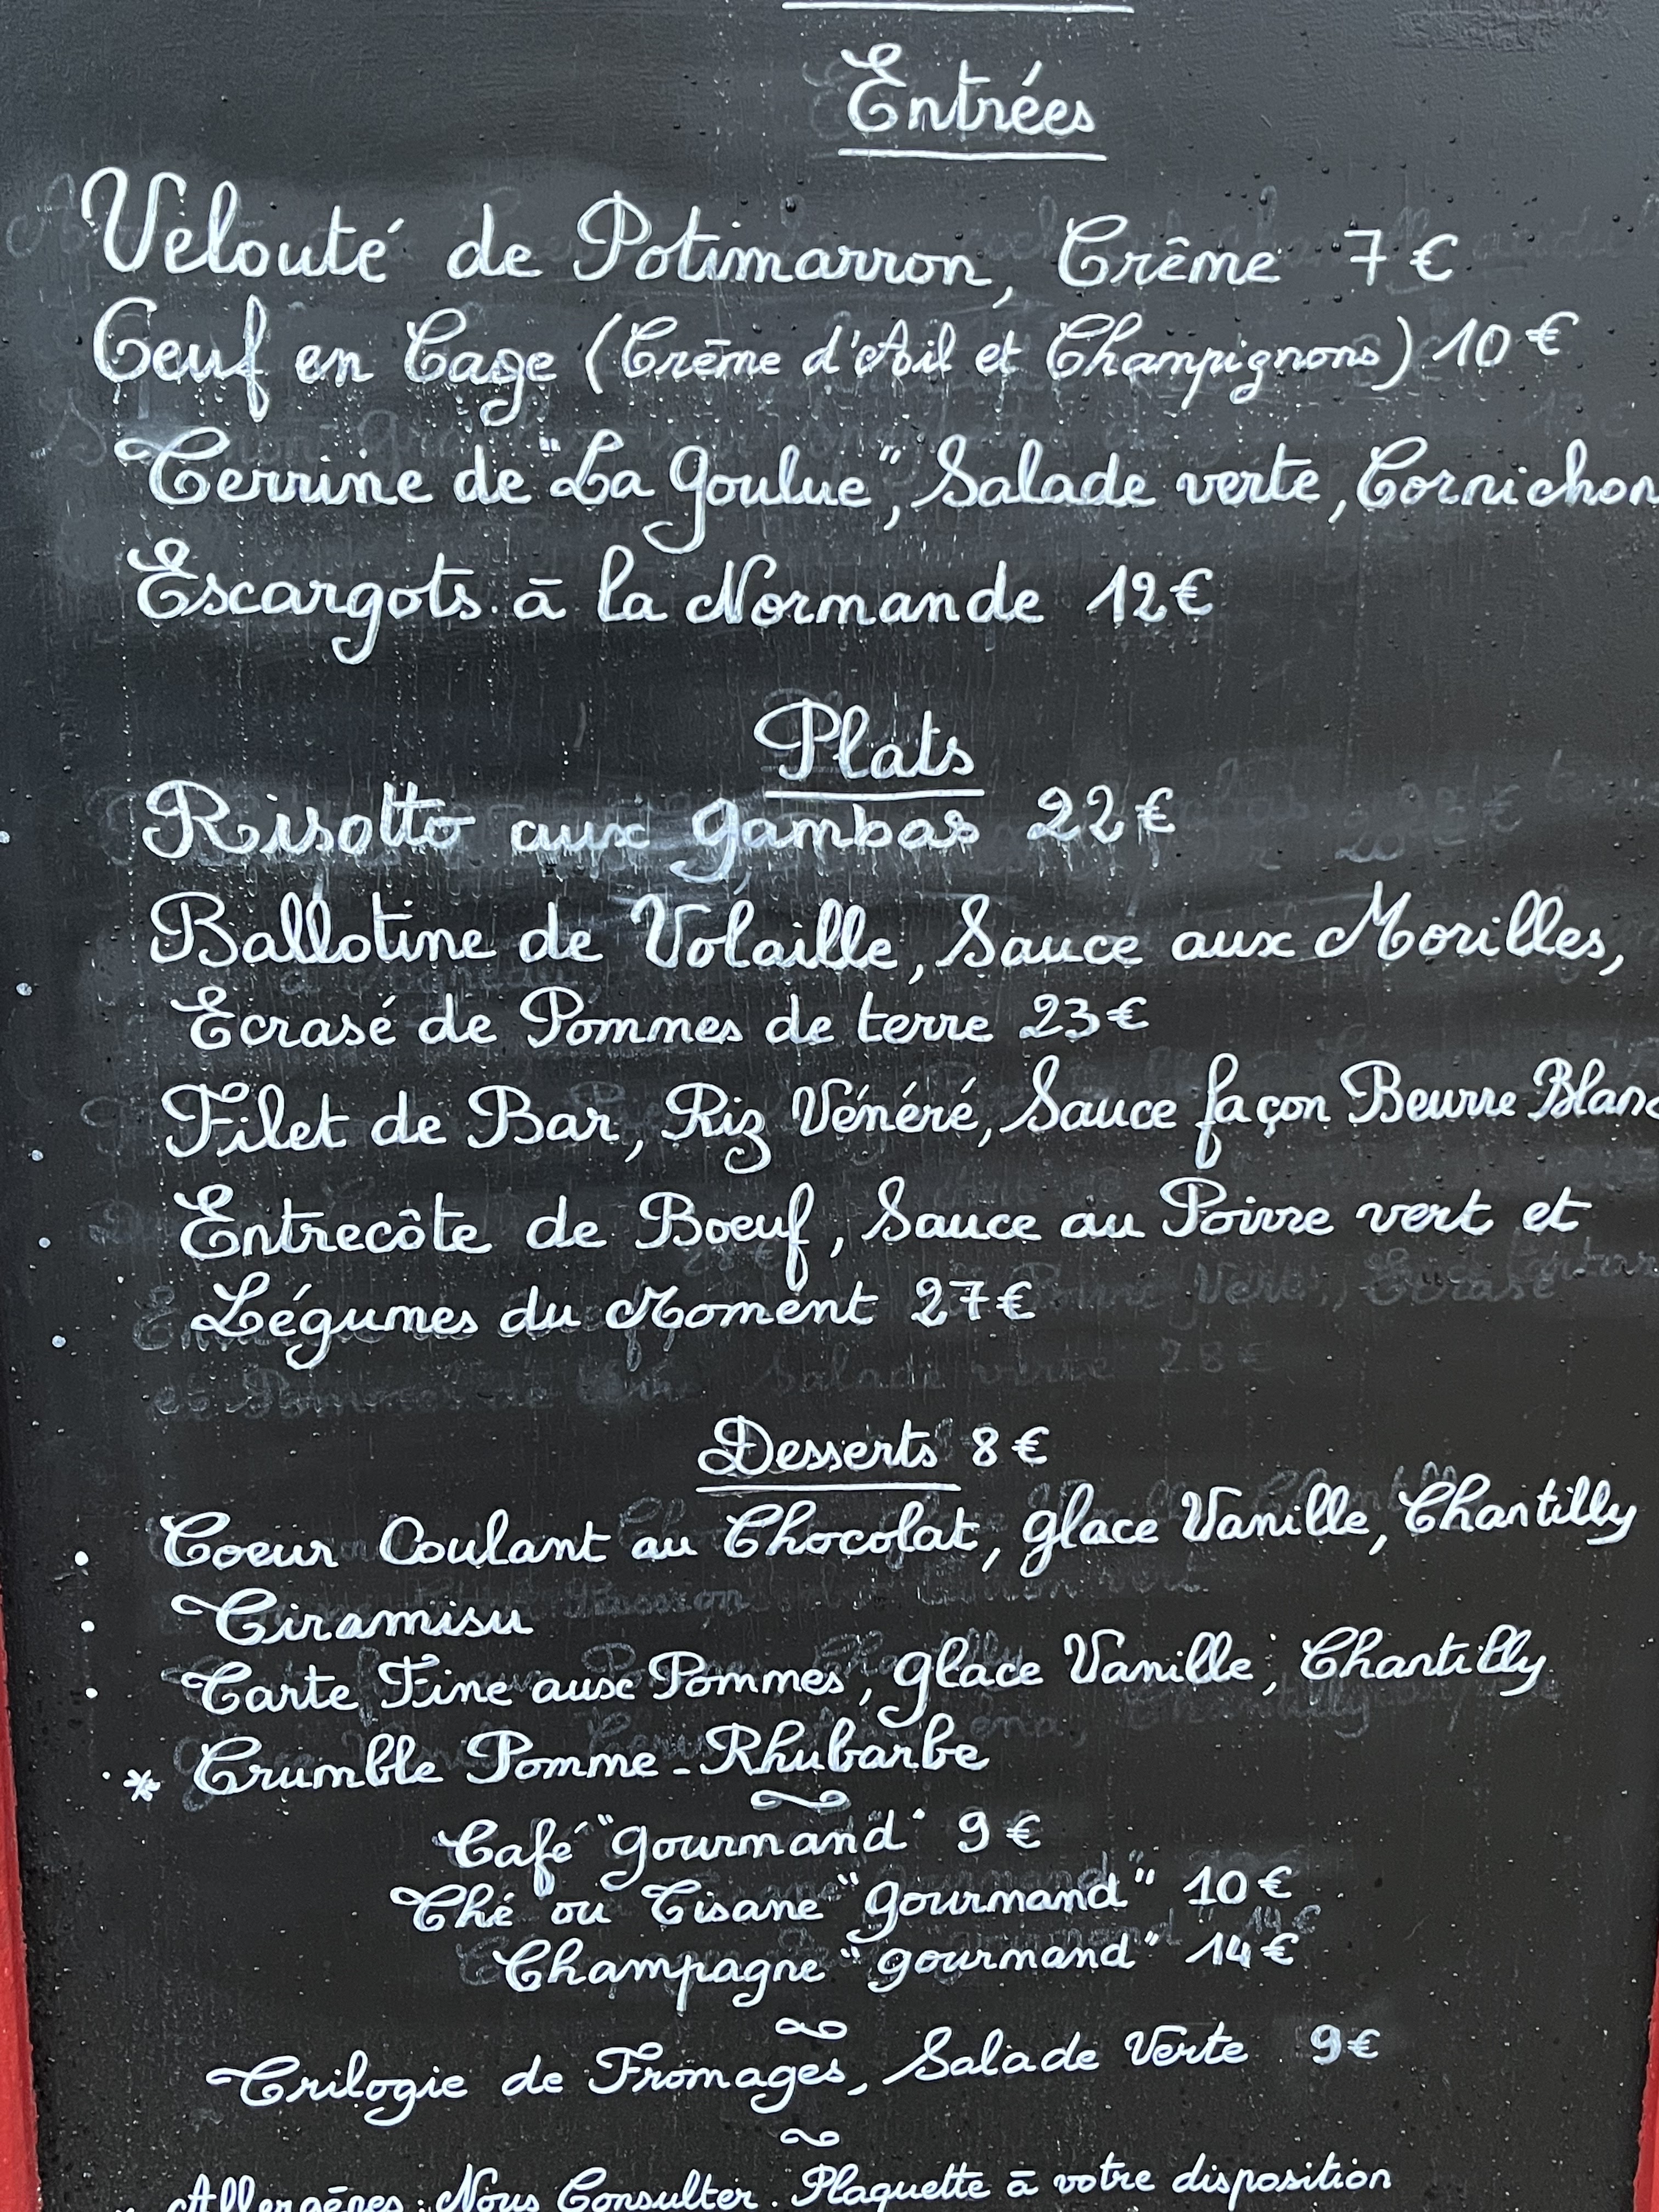 Entrées
Velouté de Potimarron, Crême 7€
Oeuf en Cage (Crême d'Ail et Champignons) 10€
Terrine de "La Goulue", Salade verte, Cornichon
Escargots à la Normande 12€
Plats
Risotto aux gambas 22€
Ballotine de Volaille, Sauce aux Morilles,
Ecrasé de Pommes de terre 23€
Filet de Bar, Riz Vénéré, Sauce façon Beurre Blanc
Entrecôte de Boeuf, Sauce au Poivre vert et
Légumes du Moment 27€
Desserts 8€
• Coeur Coulant au Chocolat, glace Vanille, Chantilly
• Tiramisu
• Tarte Fine aux Pommes, glace Vanille, Chantilly
* Crumble Pomme-Rhubarbe
Café "gourmand" 9€
Thé ou Tisane "gourmand" 10€
Champagne "gourmand" 14€
Trilogie de Fromages, Salade Verte 9€
Allergènes : Nous Consulter. Plaquette à votre disposition